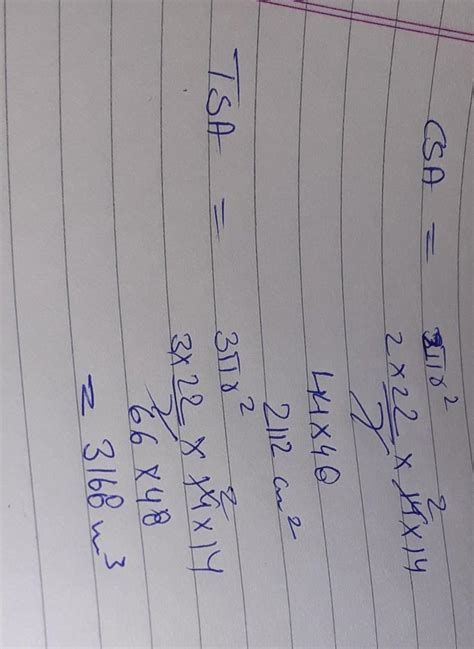 CSA = 3πr²
2 × 22/7 × 14 2 × 14
44 × 48
2112 cm²
TSA = 3πr²
3 × 22/7 × 14 2 × 14
66 × 48
= 3168 m³